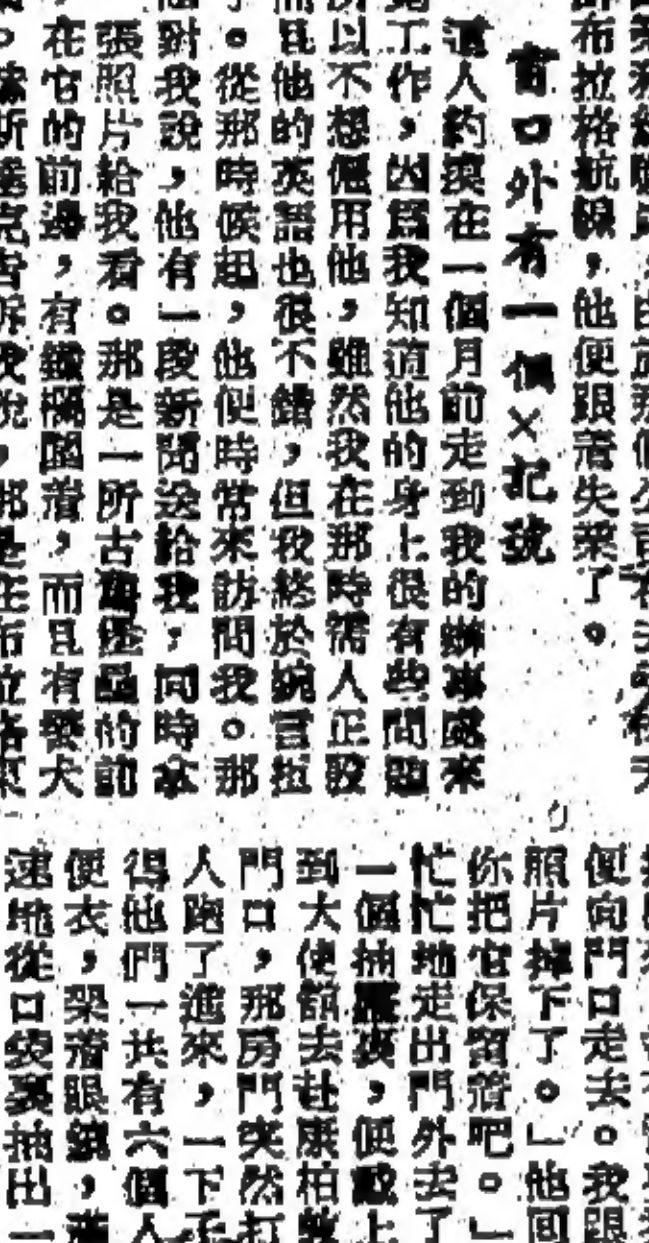 布拉格航線，他便跟着失業了。
窗口外有一個×記號
這人約莫在一個月前走到我的辦事處來
工作，因爲我知道他的身上很有些問題
所以不想僱用他，雖然我在那時需人正殷
而且他的英語也很不錯，但我終於婉言拒
。從那時候起，他便時常來訪問我。那
對我說，他有一段新聞送給我，同時拿
張照片給我看。那是一所古舊的前
，在它的前邊，有鐵欄圍着，而且有
便向門口走去。我跟
照片掉下了。」他回
你把它保留着吧。」
忙忙地走出門外去了
一個抽屜裏，便戴上
到大使館去赴康柏
門口，那房門突然打
人跑了進來，一下子
得他們一共有六個人
便衣，架着眼鏡，
速地從口袋裏抽出一